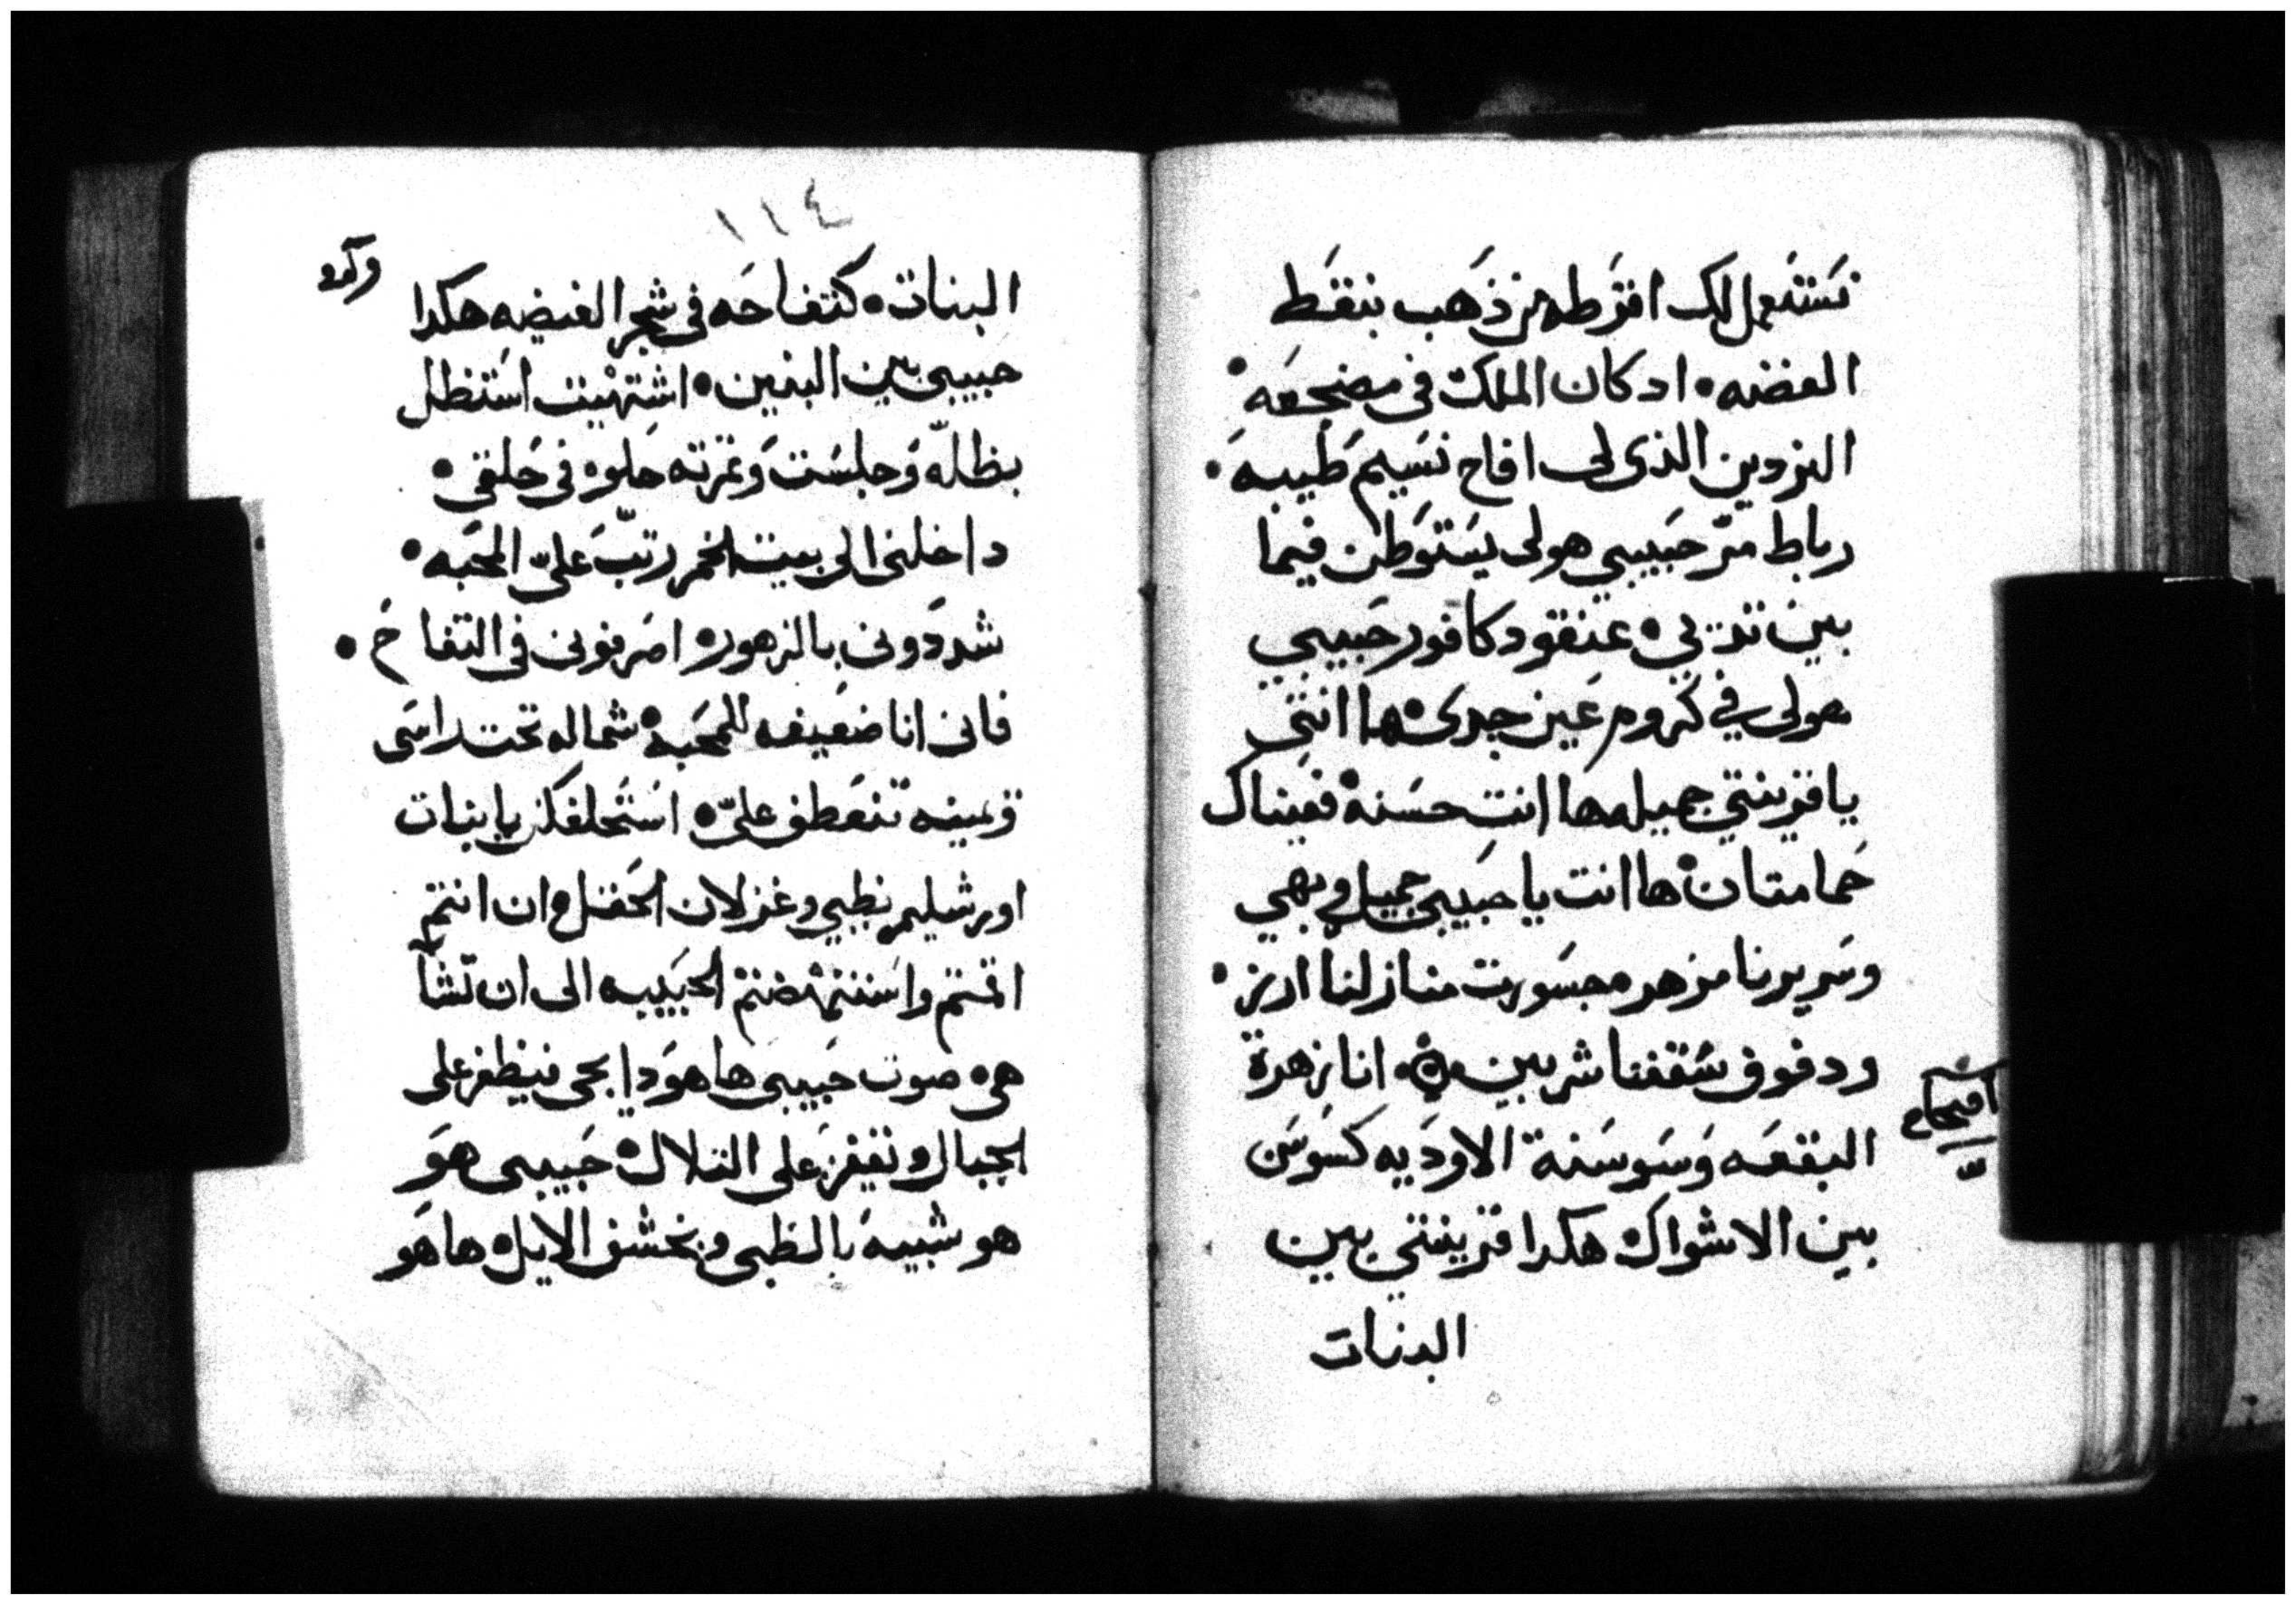 نستعمل لك اقرطه من ذهب بنقط
الفضه • اد كان الملك في مضجعه •
النردين الذى لى افاح نسيم طيبه •
رباط مرّ حبيبي هو لى يستوطن فيما
بين تديي • عنقود كافور حبيبي
هو لى في كروم عين جدى • ها انتي
يا قرينتي جميله ها انتِ حسنه • فعيناك
حمامتان • ها انت يا حبيبى جميل وبهي
وسريرنا مزهره • جسورت منازلنا ارز •
ودفوف سقفنا شربين • انا زهرة
اصحاح
ب
البقعه وسوسنة الاوديه كسوسن
بين الاشواك • هكدا قرينتي بين
البنات
١١٤
البنات • كتفاحه في شجر الغيضه هكدا
حبيبى بين البنين • اشتهيت استظل
بظلّه وجلست وثمرته حلوه فى حلقى •
داخلنى الى بيت الخمر رتّب علىّ المحبه •
شددونى بالزهور • اصرفونى فى التفاح •
فانى انا ضعيفه للمحبه • شماله تحت راسى
ويمينه تنعطف علىّ • استحلفكن يا بنات
اورشليم بظبي وغزلان الحقل • ان انتم
اقمتم واستنهضتم الحبيبه الى ان تشآ
هى • صوت حبيبى ها هو دا يجى فيظفر على
الجبال • ويقفز على التلال • حبيبى هو
هو شبيه بالظبى وبخشف الايل • ها هو